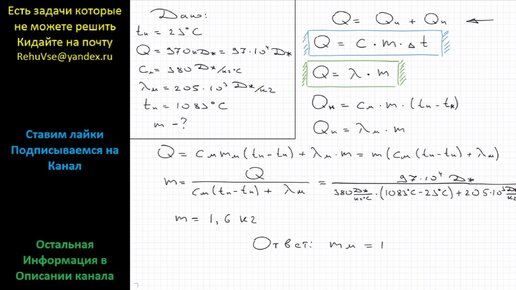 Есть задачи которые
не можете решить
Кидайте на почту
RehuVse@yandex.ru
Ставим лайки
Подписываемся на
Канал
Остальная
Информация в
Описании канала
Дано:
tн = 23°C
Q = 970кДж = 97·10⁴Дж
cм = 380 Дж/кг°C
λм = 205·10³ Дж/кг
tп = 1083°C
m - ?
Q = Qн + Qп
Q = c · m · Δt
Q = λ · m
Qн = cм · m · (tп - tн)
Qп = λм · m
Q = cм mм (tп - tн) + λм · m = m (cм (tп - tн) + λм)
m = Q / (cм (tп - tн) + λм) = 97·10⁴ Дж / (380 Дж/кг°C · (1083°C - 23°C) + 205·10³ Дж/кг)
m = 1,6 кг
Ответ: mм = 1